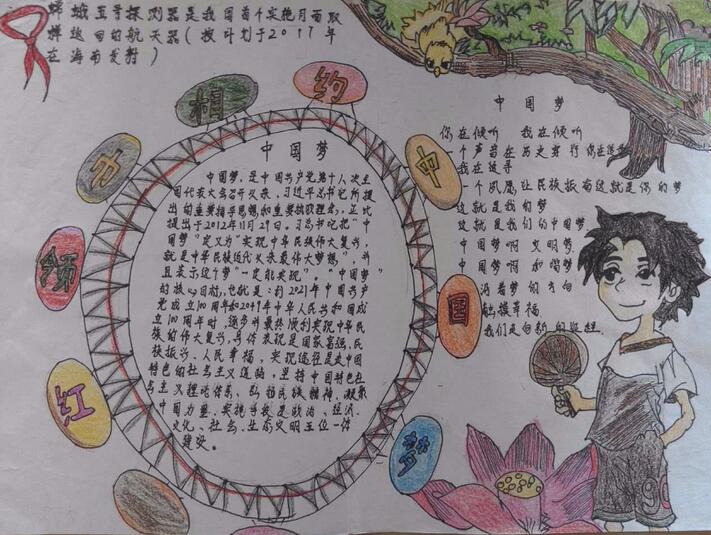 嫦娥五号探测器是我国首个实施月面取
样返回的航天器(按计划于2017年
在海南发射)
红
领
巾
相
约
中
国
梦
中国梦
中国梦,是中国共产党第十八次全
国代表大会召开以来,习近平总书记所提
出的重要指导思想和重要执政理念,正式
提出于2012年11月29日。习总书记把“中
国梦”定义为“实现中华民族伟大复兴,
就是中华民族近代以来最伟大梦想”,并
且表示这个梦“一定能实现”。“中国梦”
的核心目标,也就是:到2021年中国共产
党成立100周年和2049年中华人民共和国成
立100周年时,逐步并最终顺利实现中华民
族的伟大复兴,具体表现是国家富强,民
族振兴,人民幸福,实现途径是走中国
特色的社会主义道路,坚持中国特色社
会主义理论体系、弘扬民族精神,凝聚
中国力量,实施手段是政治、经济、
文化、社会、生态文明五位一体
建设。
中国梦
你在倾听 我在倾听
一个声音在历史穿行你在追寻
我在追寻
一个夙愿让民族振奋这就是你的梦
这就是我的梦
这就是我们的中国梦
中国梦啊 文明梦
中国梦啊 和谐梦
沿着梦的方向
触摸幸福
我们走向新的